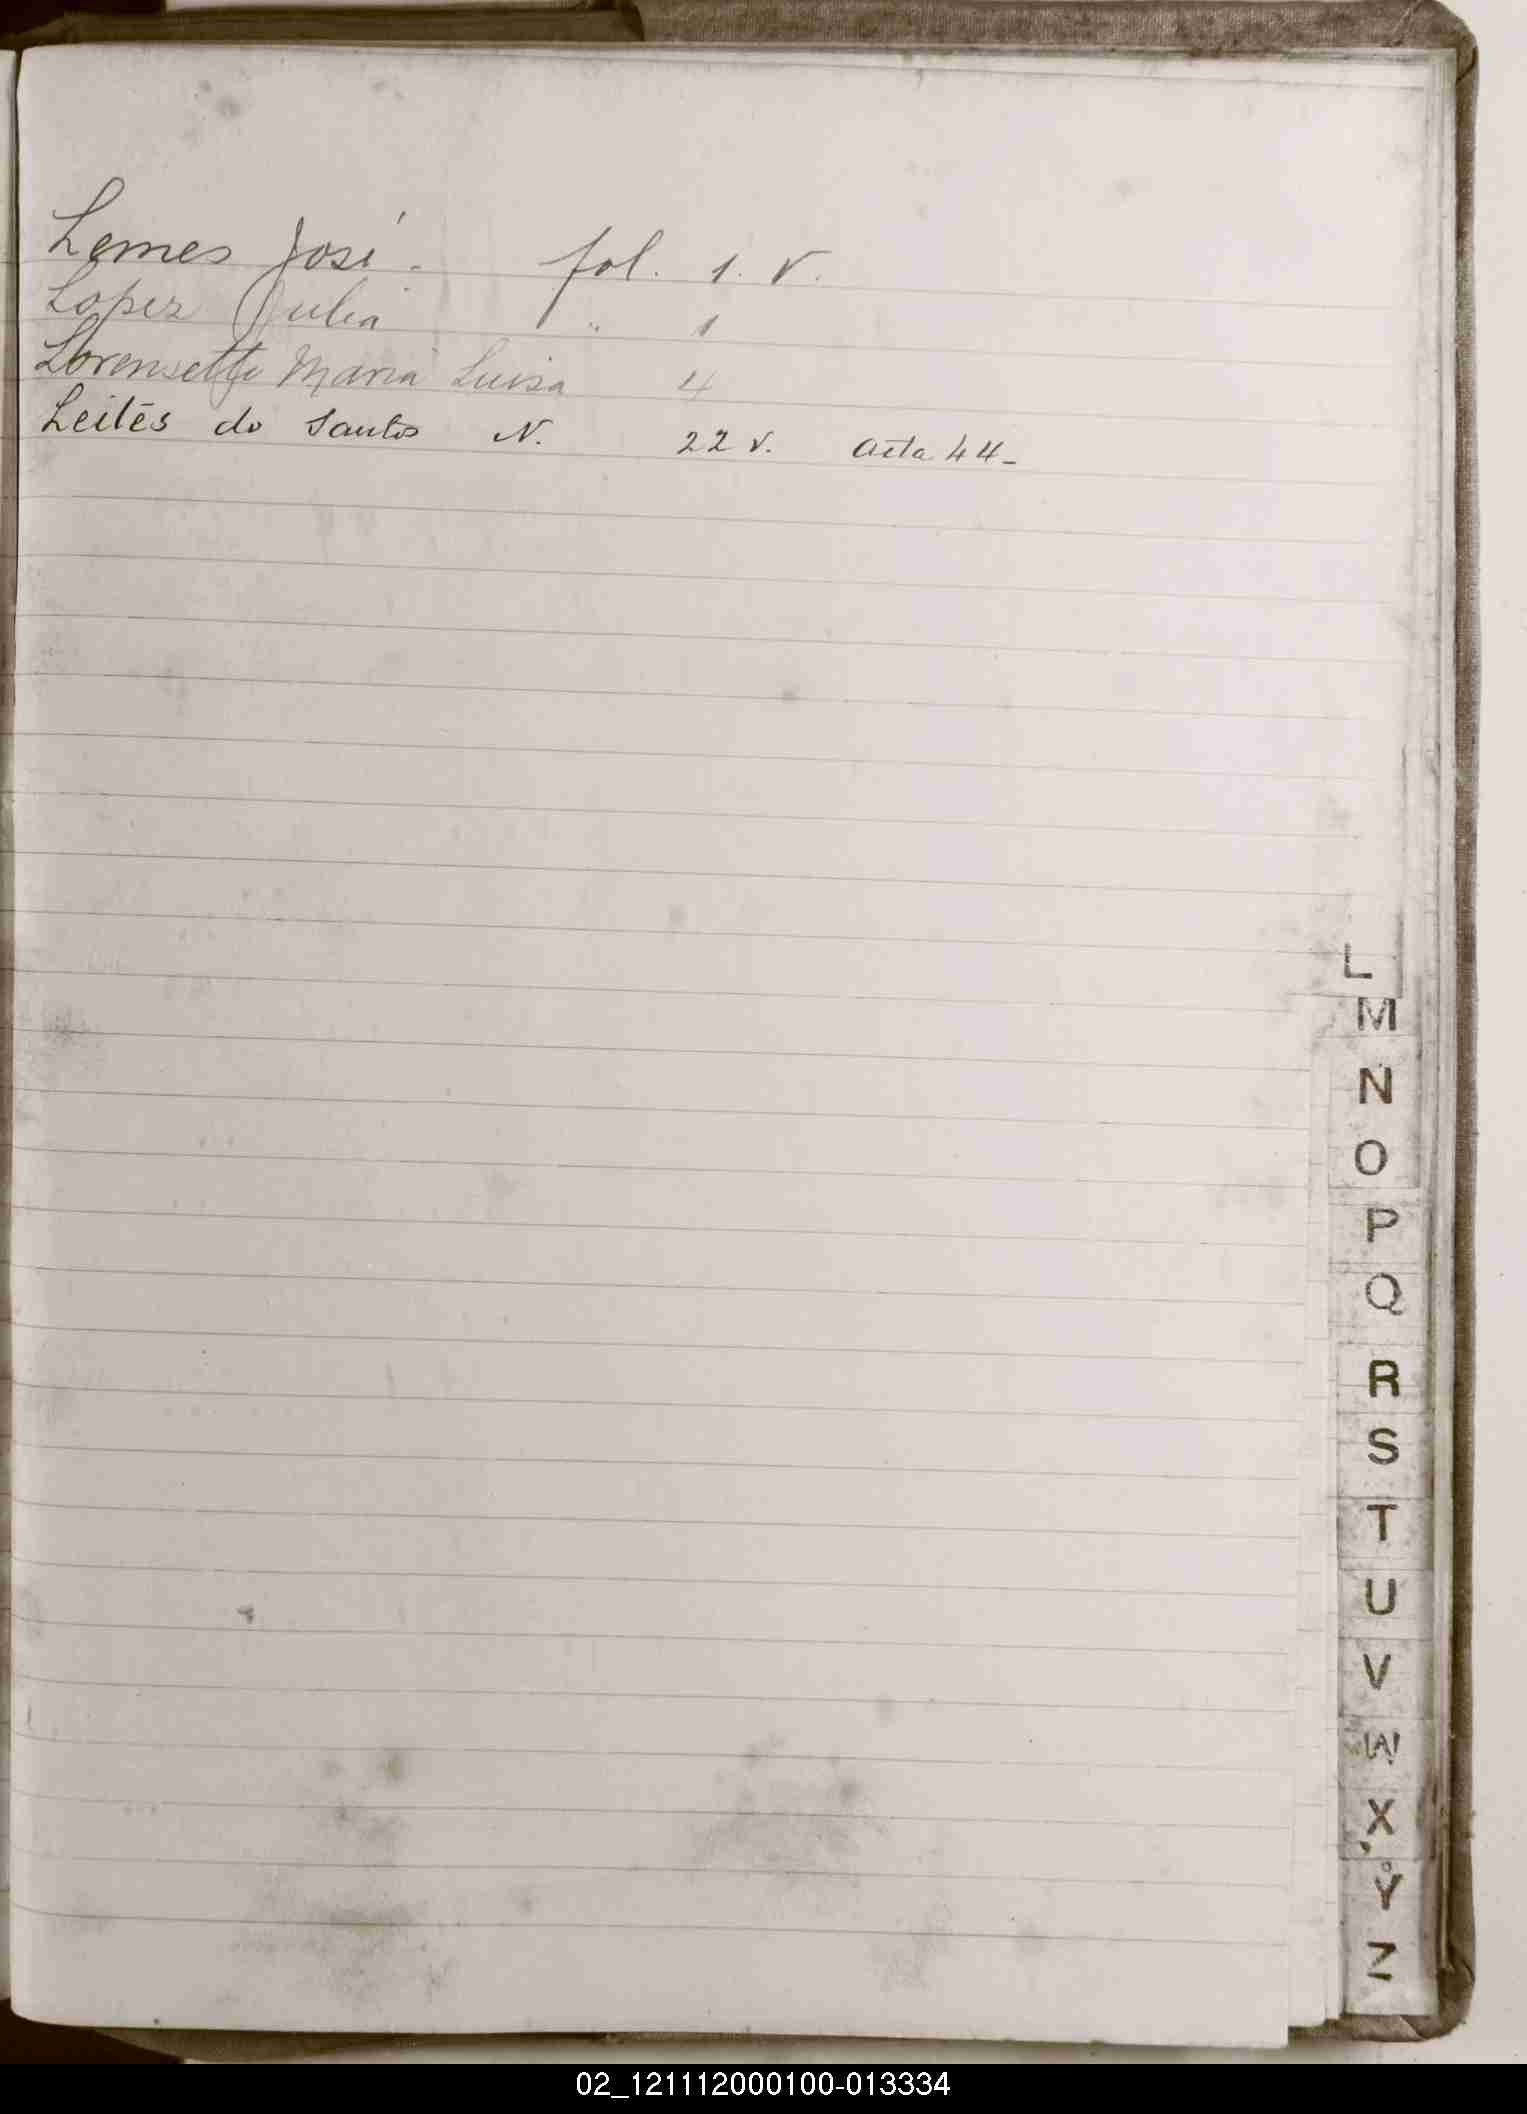 Lemes José. fol. 1. v.
Lopez Julia " 1
Lorensette Maria Luisa 4
Leites do Santos N. 22 v. Acta 44-
L
M
N
O
P
Q
R
S
T
U
V
W
X
Y
Z
02_121112000100-013334